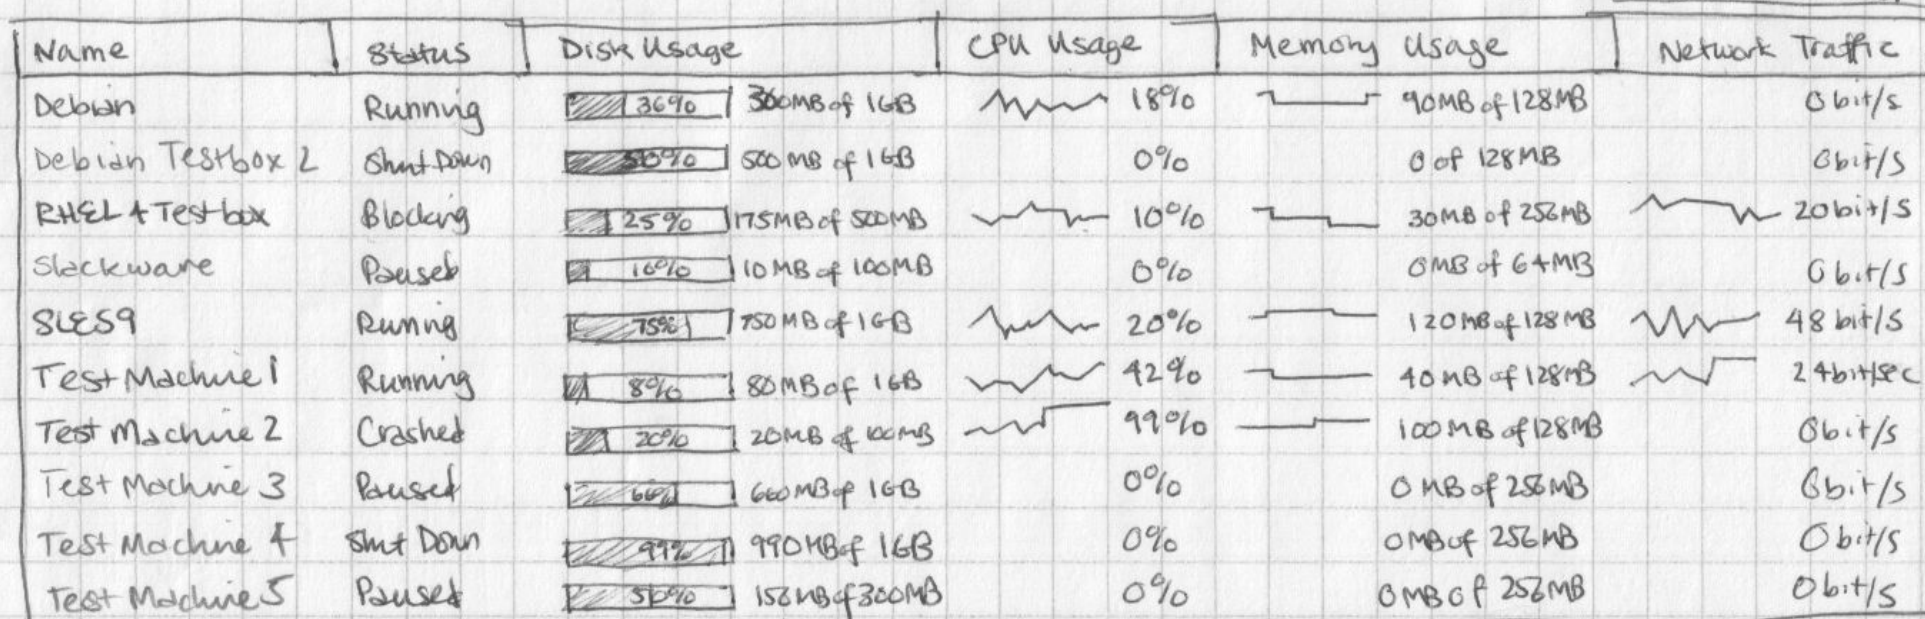 Name Status Disk Usage CPU Usage Memory Usage Network Traffic
Debian Running 36% 360MB of 1GB 18% 90MB of 128MB 0bit/s
Debian Testbox 2 Shut Down 50% 500MB of 1GB 0% 0 of 128MB 0bit/s
RHEL 4 Testbox Blocking 25% 175MB of 500MB 10% 30MB of 256MB 20bit/s
Slackware Paused 10% 10MB of 100MB 0% 0MB of 64MB 0bit/s
SLES9 Runing 75% 750MB of 1GB 20% 120MB of 128MB 48bit/s
Test Machine 1 Running 8% 80MB of 1GB 42% 40MB of 128MB 24bit/sec
Test Machine 2 Crashed 20% 20MB of 100MB 99% 100MB of 128MB 0bit/s
Test Machine 3 Paused 66% 660MB of 1GB 0% 0MB of 256MB 0bit/s
Test Machine 4 Shut Down 99% 990MB of 1GB 0% 0MB of 256MB 0bit/s
Test Machine 5 Paused 50% of 300MB 0% 0MB of 256MB 0bit/s